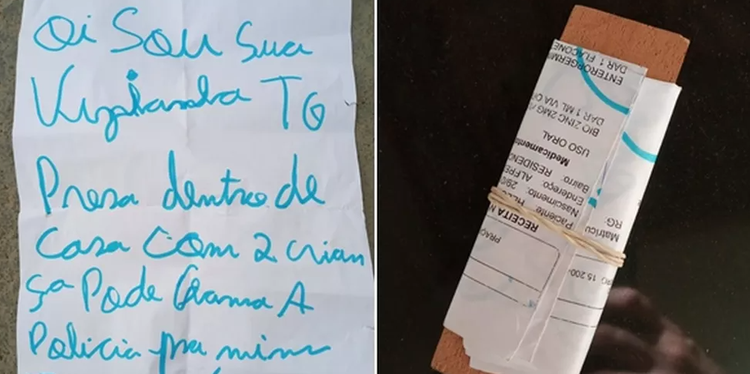 Oi Sou Sua
Vizinha TG
Presa dentro de
Casa Com 2 crian
ça Pode Chama A
Policia pra mim
ENTEROGERMI
DAR 1 FLACONE
BIO ZINC 2MG
DAR 1 ML VIA O
USO ORAL
Medicamento
Bairro: RESIDENC
Endereço: ALFRE
Nascimento: 29/0
Paciente: HE
RECEITA
RG:
Matrícu
PRAÇ
15.200-